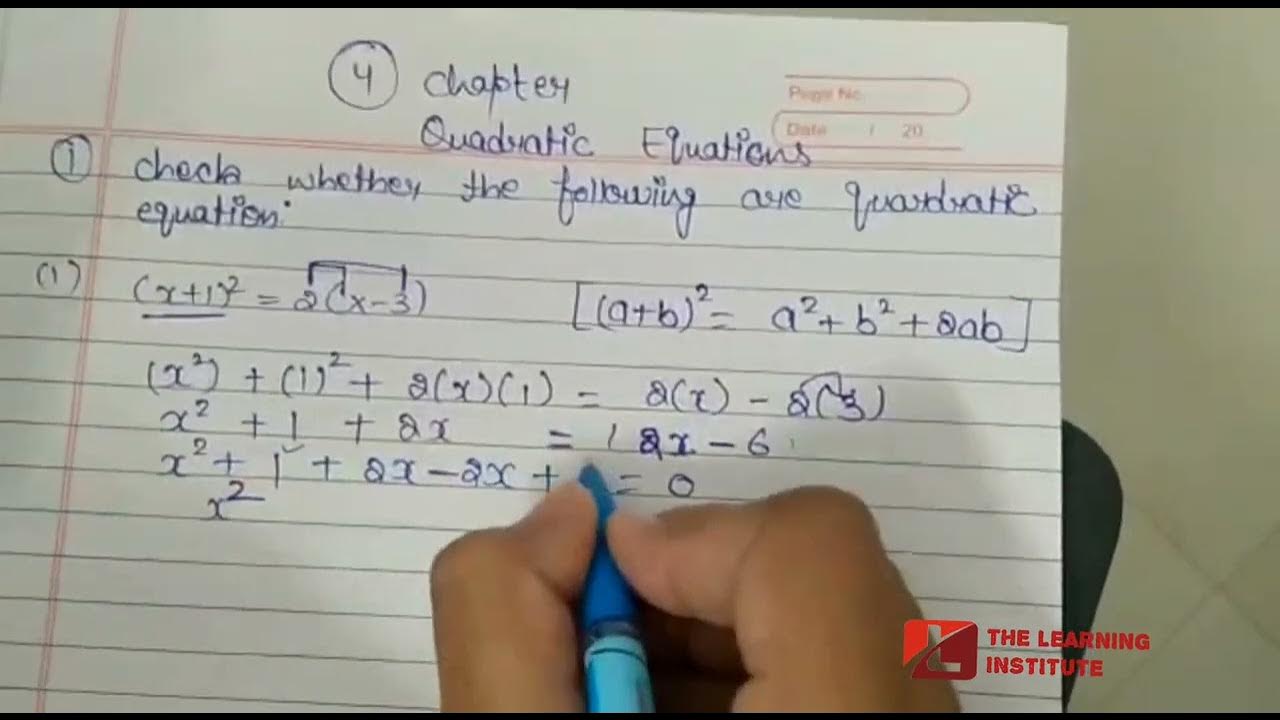 4 chapter
Page No.
Date / 20
Quadratic Equations
① check whether the following are quardratic
equation:
(1) (x+1)² = 2(x-3) [(a+b)² = a² + b² + 2ab]
(x²) + (1)² + 2(x)(1) = 2(x) - 2(3)
x² + 1 + 2x = 2x - 6
x² + 1 + 2x - 2x + = 0
x²
THE LEARNING
INSTITUTE